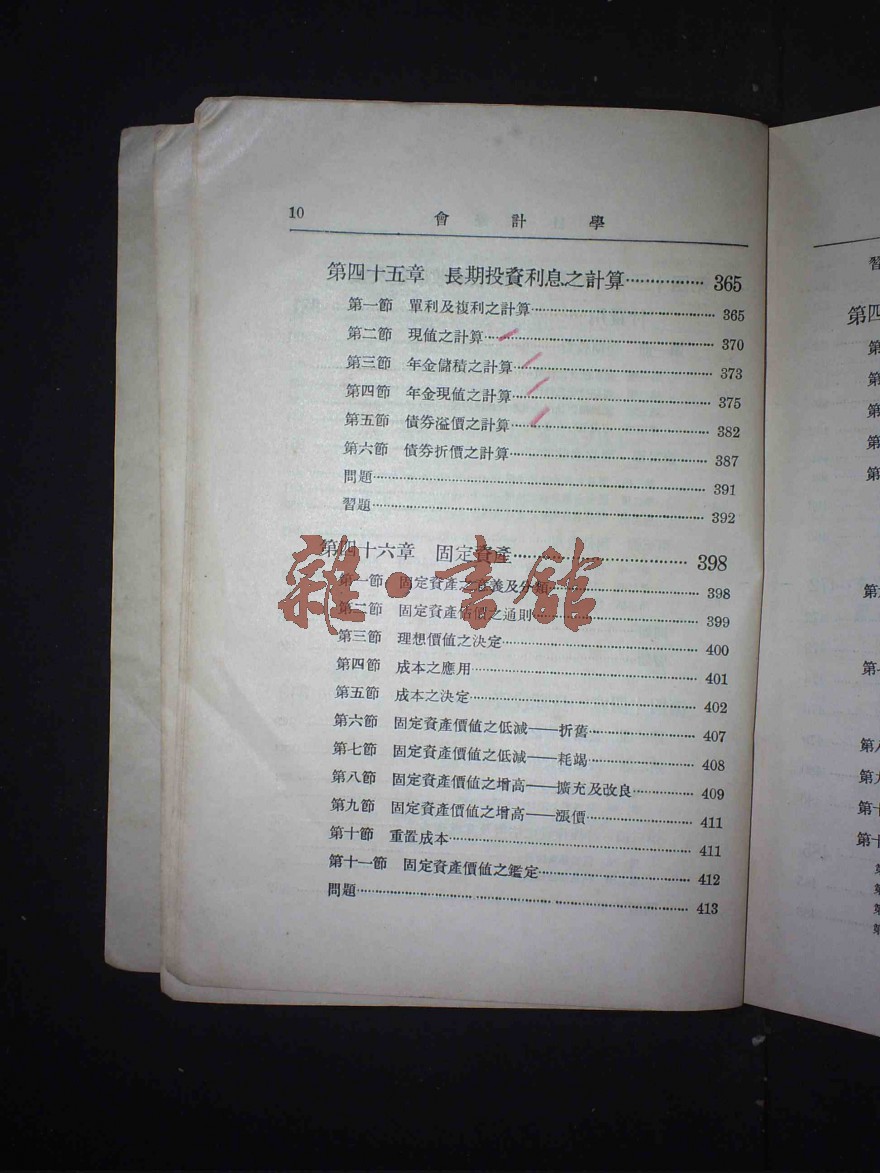 10 會計學
第四十五章 長期投資利息之計算……………… 365
第一節 單利及複利之計算……………… 365
第二節 現値之計算……………… 370
第三節 年金儲積之計算……………… 373
第四節 年金現値之計算……………… 375
第五節 債券溢價之計算……………… 382
第六節 債券折價之計算……………… 387
問題……………… 391
習題……………… 392
第四十六章 固定資產……………… 398
第一節 固定資產之意義及分類……………… 398
第二節 固定資產估價之通則……………… 399
第三節 理想價値之決定……………… 400
第四節 成本之應用……………… 401
第五節 成本之決定……………… 402
第六節 固定資產價値之低減——折舊……………… 407
第七節 固定資產價値之低減——耗竭……………… 408
第八節 固定資產價値之增高——擴充及改良……………… 409
第九節 固定資產價値之增高——漲價……………… 411
第十節 重置成本……………… 411
第十一節 固定資產價値之鑑定……………… 412
問題……………… 413
雜·書館
習
第四
第
第
第
第
第
第
第
第
第
第
第